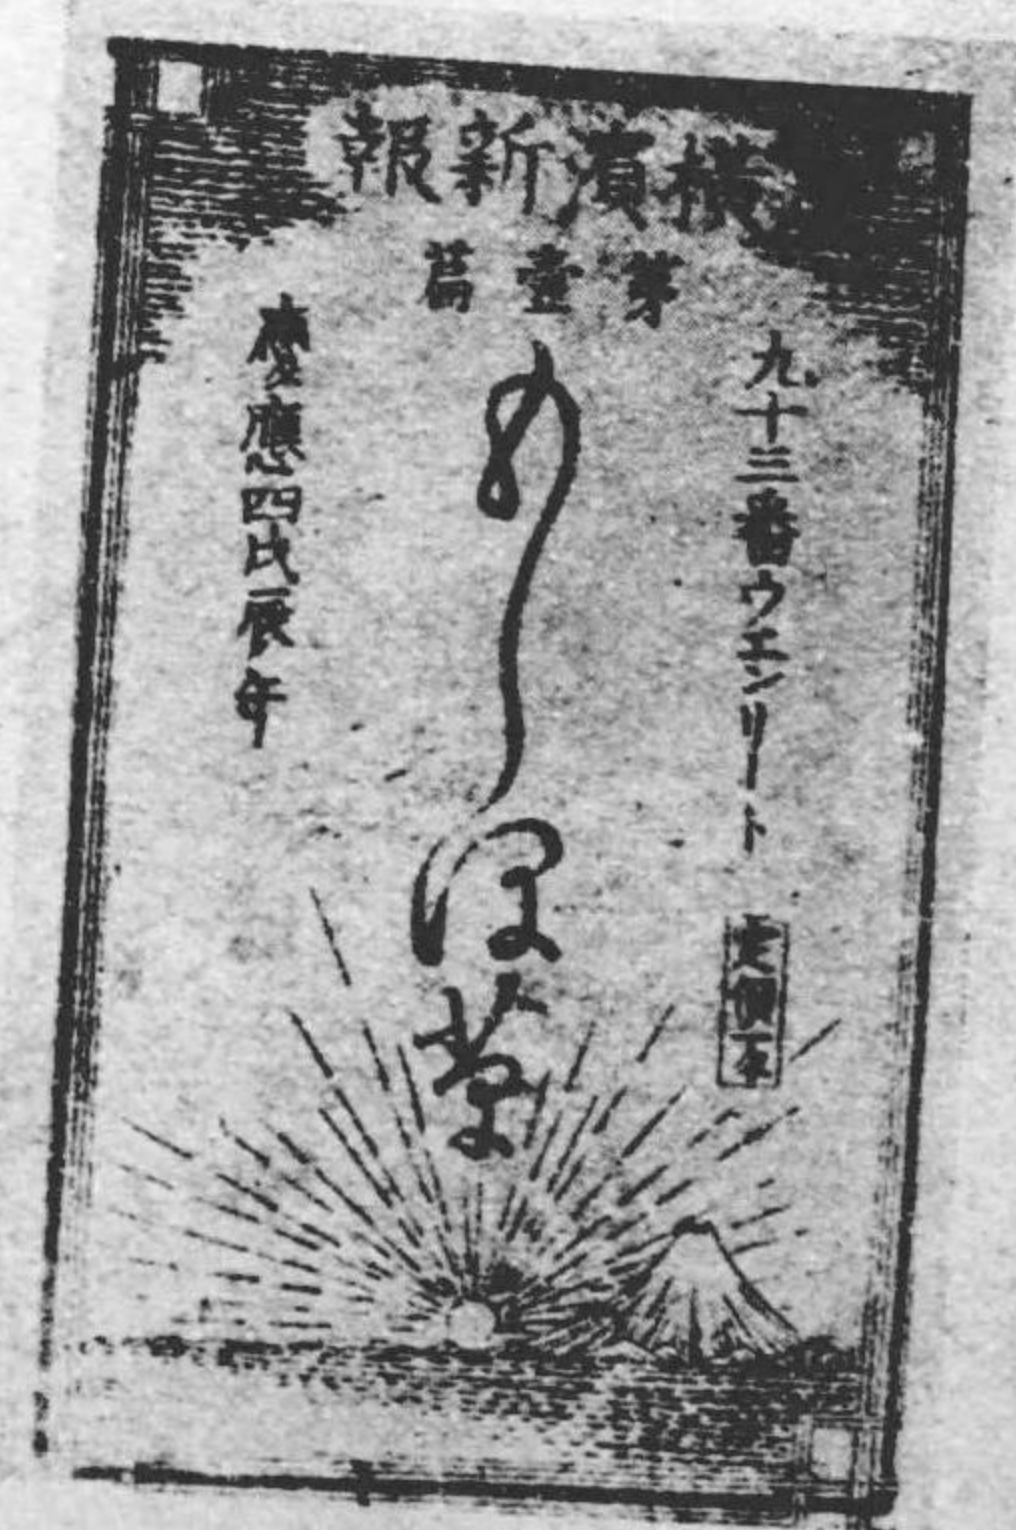 横濱新報
第壹篇
九十三番ウエンリート
定價一匁
もしほ草
慶應四戊辰年